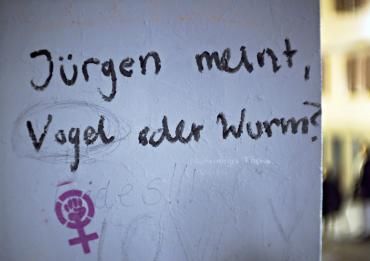 Jürgen meint,
Vogel oder Wurm?
Beides!!!